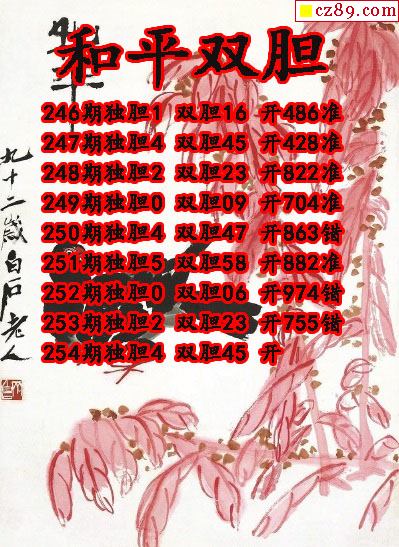 cz89.com
和平双胆
246期独胆1 双胆16 开486准
247期独胆4 双胆45 开428准
248期独胆2 双胆23 开822准
249期独胆0 双胆09 开704准
250期独胆4 双胆47 开863错
251期独胆5 双胆58 开882准
252期独胆0 双胆06 开974错
253期独胆2 双胆23 开755错
254期独胆4 双胆45 开
九十二岁白石老人